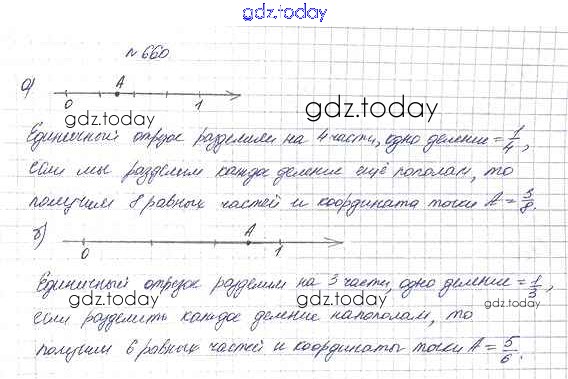 gdz.today
№660.
а) A
0 1
gdz.today gdz.today
Единичный отрезок разделили на 4 части, одно деление = 1/4,
если мы разделим каждое деление ещё пополам, то
получим 8 равных частей и координата точки A = 3/8.
б)
0 1
Единичный отрезок разделим на 3 части, одно деление = 1/3,
gdz.today gdz.today gdz.today
если разделить каждое деление напополам, то
получим 6 равных частей и координаты точки A = 5/6.
gdz.today